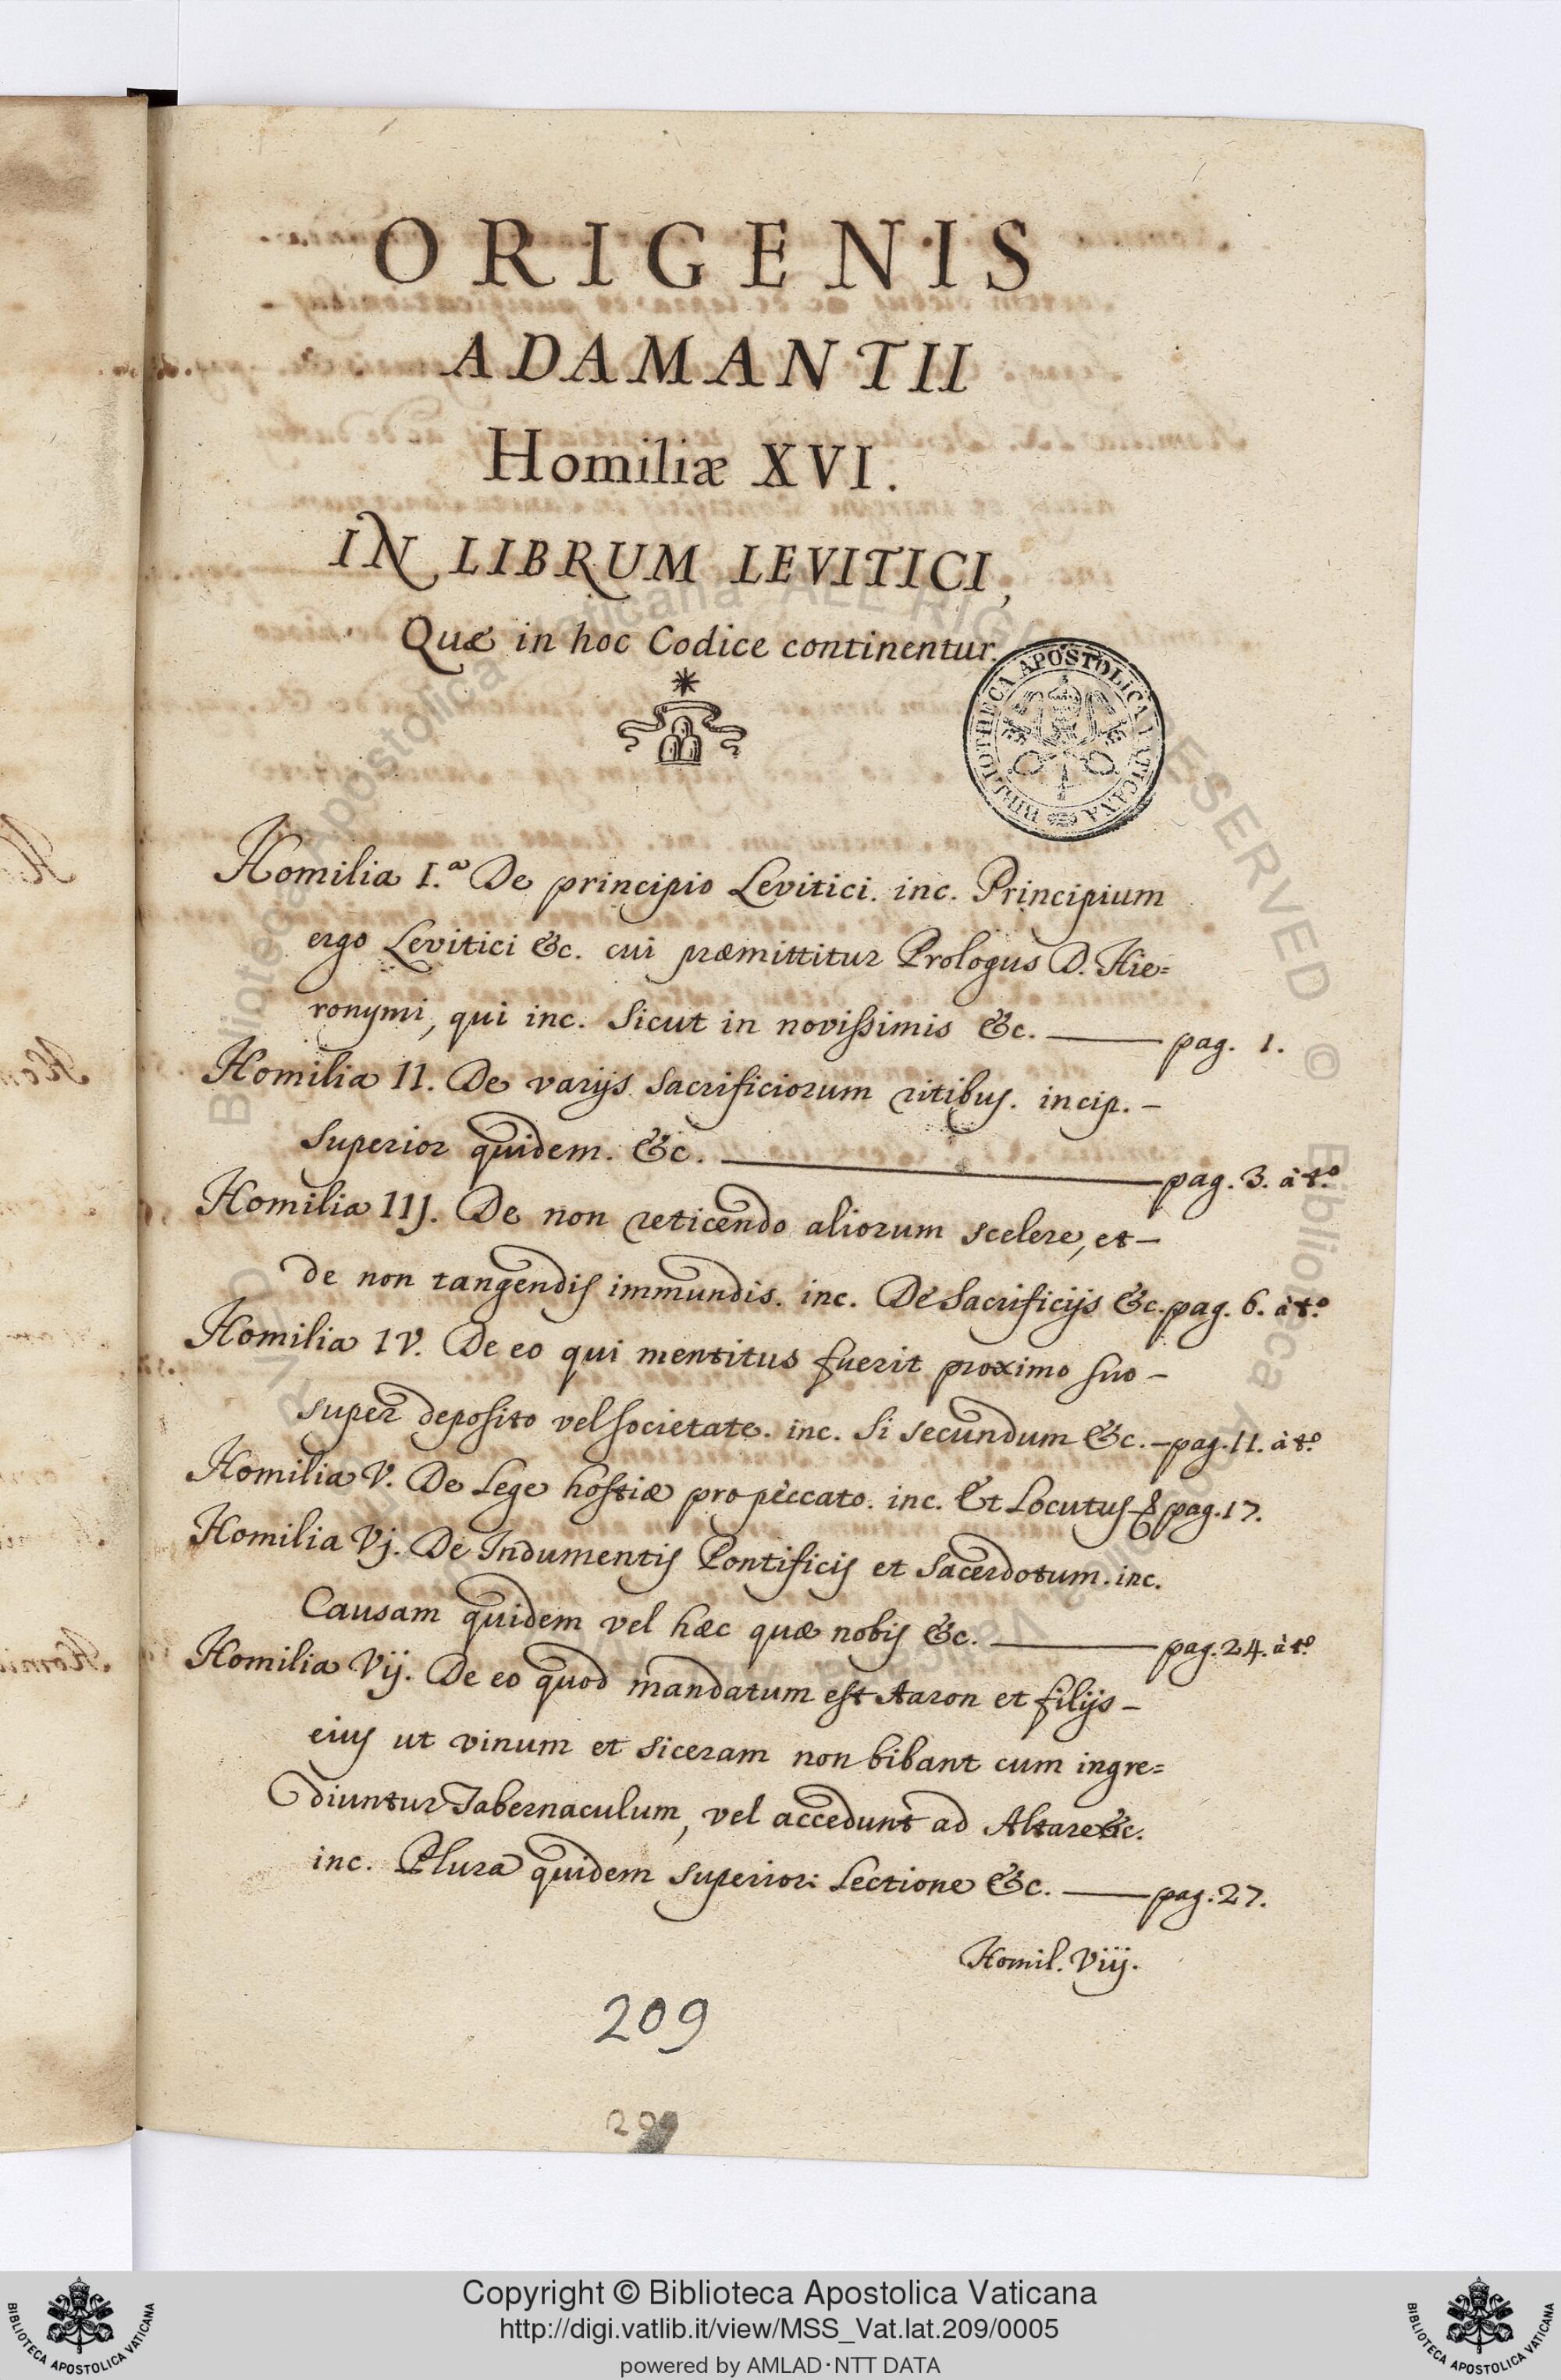 ORIGENIS
ADAMANTII
Homiliæ XVI.
IN LIBRUM LEVITICI,
Quæ in hoc Codice continentur.
BIBLIOTHECA APOSTOLICA VATICANA
Homilia I.ª De principio Levitici. inc. Principium
ergo Levitici &c. cui præmittitur Prologus D. Hie=
ronymi, qui inc. Sicut in novissimis &c. — pag. 1.
Homilia II. De varijs sacrificiorum ritibus. incip. –
Superior quidem. &c. — pag. 3. à t.º
Homilia IIJ. De non reticendo aliorum scelere, et –
de non tangendis immundis. inc. De Sacrificijs &c. pag. 6. à t.º
Homilia IV. De eo qui mentitus fuerit proximo suo –
super deposito vel societate. inc. Si secundum &c. – pag. 11. à t.º
Homilia V. De Lege hostiæ pro peccato. inc. Et Locutus & pag. 17.
Homilia Vj. De Indumentis Pontificis et Sacerdotum. inc.
Causam quidem vel hæc quæ nobis &c. — pag. 24. à t.º
Homilia Vij. De eo quod mandatum est Aaron et filijs –
eius ut vinum et siceram non bibant cum ingre=
diuntur Tabernaculum, vel accedunt ad Altare &c.
inc. Plura quidem superiori Lectione &c. — pag. 27.
Homil. Viij.
209
209
Biblioteca Apostolica Vaticana ALL RIGHTS RESERVED ©
Copyright © Biblioteca Apostolica Vaticana
http://digi.vatlib.it/view/MSS_Vat.lat.209/0005
powered by AMLAD·NTT DATA
BIBLIOTECA APOSTOLICA VATICANA
BIBLIOTECA APOSTOLICA VATICANA